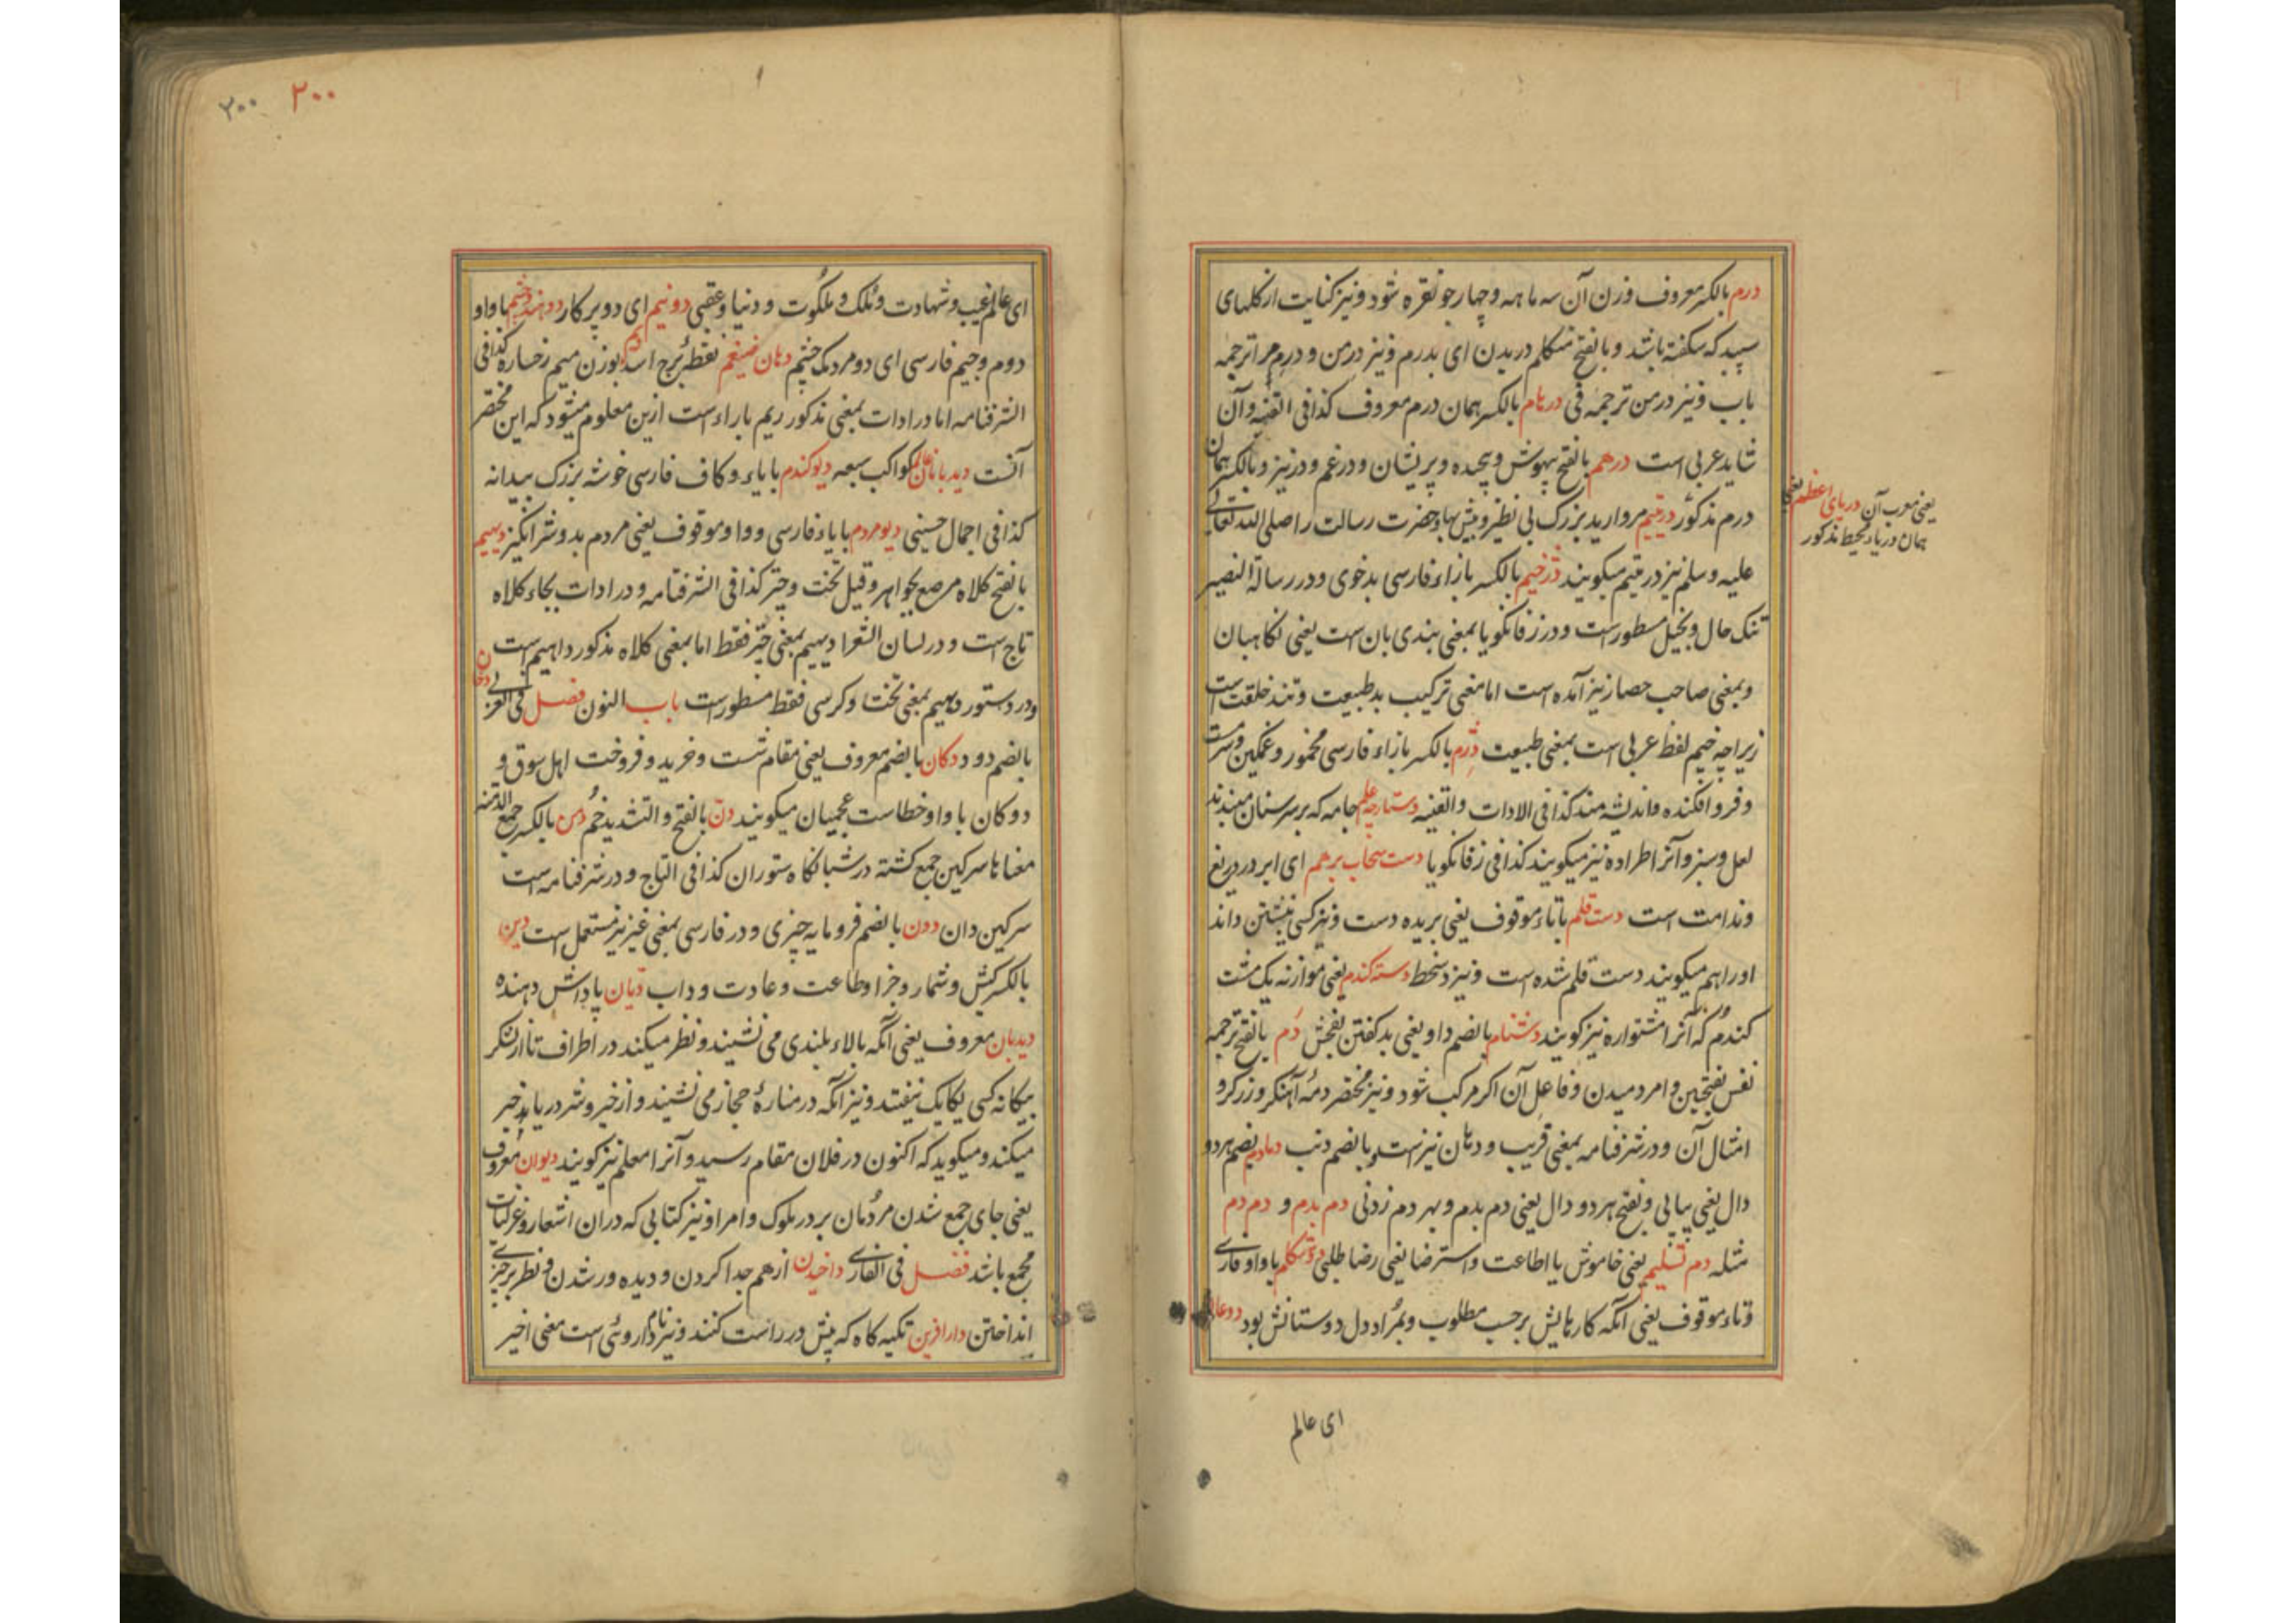 درم بالکسر معروف وزن آن سه ماهه و چهار جو نقره شود و نیز کنایت از کلهای
سپید که شکفته باشد و بالفتح متکلم دریدن ای بدرم و نیز در من و درم مرا ترجمه
باب و نیز در من ترجمه فی درهام بالکسر همان درم معروف کذا فی القنیه و آن
شاید عربی است درهم بالفتح بیهوش و پیچیده و پریشان و درغم و در نیز و بالکسر همان
درم مذکور دریتیم مروارید بزرک بی نظیر و بیش بها و حضرت رسالت را صلی الله تعالی
علیه و سلم نیز در یتیم میکویند دژخیم بالکسر با زاء فارسی بدخوی و در رسالة النصیر
تنک حال و بخیل مسطور است و در زفانکویا بمعنی بندی بان است یعنی نکاهبان
و بمعنی صاحب حصار نیز آمده است اما معنی ترکیب بد طبیعت و تند خلقت است
زیراچه خیم لفظ عربی است بمعنی طبیعت دژم بالکسر با زاء فارسی مخمور و غمکین و مست
و فرو افکنده و اندیشه مند کذا فی الادات و القنیه دستارچه علم جامه که بر سر سنان میبندند
لعل و سبز و آنرا طراده نیز میکویند کذا فی زفانکویا دست سحاب برهم ای ابر در دریغ
و ندامت است دست قلم با تاء موقوف یعنی بریده دست و نیز کسی نبشتن داند
او را هم میکویند دست قلم شده است و نیز دستخط دسته کندم یعنی موازنه یک مشت
کندم که آنرا مشتواره نیز کویند دشنام بالضم داو یعنی بد کفتن بفحش دم بالفتح ترجمه
نفس بفتحین و امر دمیدن و فاعل آن اکر مرکب شود و نیز مختصر دمهٔ آهنکر و زرکر و
امثال آن و در شرفنامه بمعنی قریب و دهان نیز است و بالضم ذنب دمادم بضم هر دو
دال یعنی پیاپی و بفتح هر دو دال یعنی دم بدم و بهر دم زدنی دم بدم و دم دم
مثله دم تسلیم یعنی خاموش با اطاعت و استرضا یعنی رضا طلبی دوستکام با واو فارسی
و تاء موقوف یعنی آنکه کارهایش بر حسب مطلوب و بمراد دل دوستانش بود دوعالم
یعنی معرب آن دریای اعظم یعنی
همان دریاء محیط مذکور
ای عالم
۲۰۰ ۲۰۰
ای عالم غیب و شهادت و ملک و ملکوت و دنیا و عقبی دونیم ای دو پرکار دو هندو چشم با واو
دوم و جیم فارسی ای دو مردمک چشم دهان ضیغم نقطهٔ برج اسد دیم بوزن میم رخساره کذا فی
الشرفنامه اما در ادات بمعنی مذکور ریم با راء است ازین معلوم میشود که این مختصر
آنست دیدبانان عالم کواکب سبعه دیوکندم با یاء و کاف فارسی خوشه بزرک بیدانه
کذا فی اجمال حسینی دیومردم با یاء فارسی و واو موقوف یعنی مردم بد و شرانکیز دیهیم
بالفتح کلاه مرصع بجواهر و قیل تخت و چتر کذا فی الشرفنامه و در ادات بجاء کلاه
تاج است و در لسان الشعرا دیهیم بمعنی چتر فقط اما بمعنی کلاه مذکور داهیم است
و در دستور دهیم بمعنی تخت و کرسی فقط مسطور است باب النون فصل فی العربی دخان
بالضم دود دکان بالضم معروف یعنی مقام نشست و خرید و فروخت اهل سوق و
دوکان با واو خطاست عجمیان میکویند دن بالفتح و التشدید خم دمن بالکسر جمع الدمنه
معناها سرکین جمع کشته در شبانکاه ستوران کذا فی التاج و در شرفنامه است
سرکین دان دون بالضم فرومایه چیزی و در فارسی بمعنی غیر نیز مستعمل است دین
بالکسر کیش و شمار و جزا و طاعت و عادت و داب دیان پاداش دهنده
دیدبان معروف یعنی آنکه بالاء بلندی می نشیند و نظر میکند در اطراف تا از لشکر
بیکانه کسی یکایک نیفتد و نیز آنکه در منارهٔ جهاز می نشیند و از خیر و شر دریا بدخبر
میکند و میکوید که اکنون در فلان مقام رسید و آنرا معلم نیز کویند دیوان معروف
یعنی جای جمع شدن مردمان بر در ملوک و امرا و نیز کتابی که دران اشعار و غزلیات
مجمع باشد فصل فی الفارسی داخیدن از هم جدا کردن و دیده ور شدن و نظر بر چیزی
انداختن دارافزین تکیه کاه که پیش در راست کنند و نیز نام داروئی است معنی اخیر